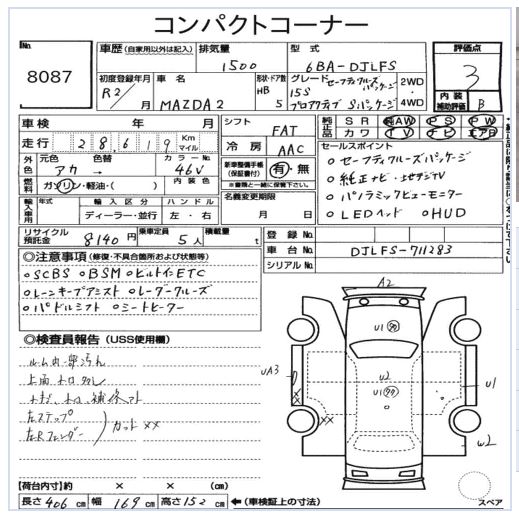 コンパクトコーナー
No. 8087
車歴 (自家用以外は記入)
排気量 1500
型式 6BA-DJLFS
評価点 3
内装補助評価 B
初度登録年月 R2/
車名 MAZDA2
形状・ドア数 HB 5
グレード セーフティクルーズパッケージ
15S
プロアクティブ Sパッケージ
2WD
4WD
車検 年 月
走行 28,619 Km マイル
シフト FAT
冷房 AAC
純正品 SR AW PS PW
カワ TV ナビ エアB
外色 元色 アカ → 色替
カラーNo. 46V
燃料 ガソリン・軽油・( )
内装色
新車整備手帳 (保証書含む) 有・無
※書類と一緒に保管下さい。
セールスポイント
○セーフティクルーズパッケージ
○純正ナビ・地デジTV
○パノラミックビューモニター
○LEDヘッド ○HUD
輸入車用 輸入区分 ディーラー・並行
ハンドル 左・右
名義変更期限 月 日
リサイクル預託金 8140円
乗車定員 5人
積載量 t
登録No.
車台No. DJLFS-711283
シリアルNo.
◎注意事項 (修復・不具合箇所および状態等)
○SCBS ○BSM ○ビルトインETC
○レーンキープアシスト ○レーダークルーズ
○パドルシフト ○シートヒーター
◎検査員報告 (USS使用欄)
ルーム内一部汚れ
左ステップ
左Rフェンダー
カット XX
A2
U1
UA3
U2
U1
U1
XX
W2
スペア
【荷台内寸】 約 × × (cm)
長さ 406 cm 幅 169 cm 高さ 152 cm ←(車検証上の寸法)